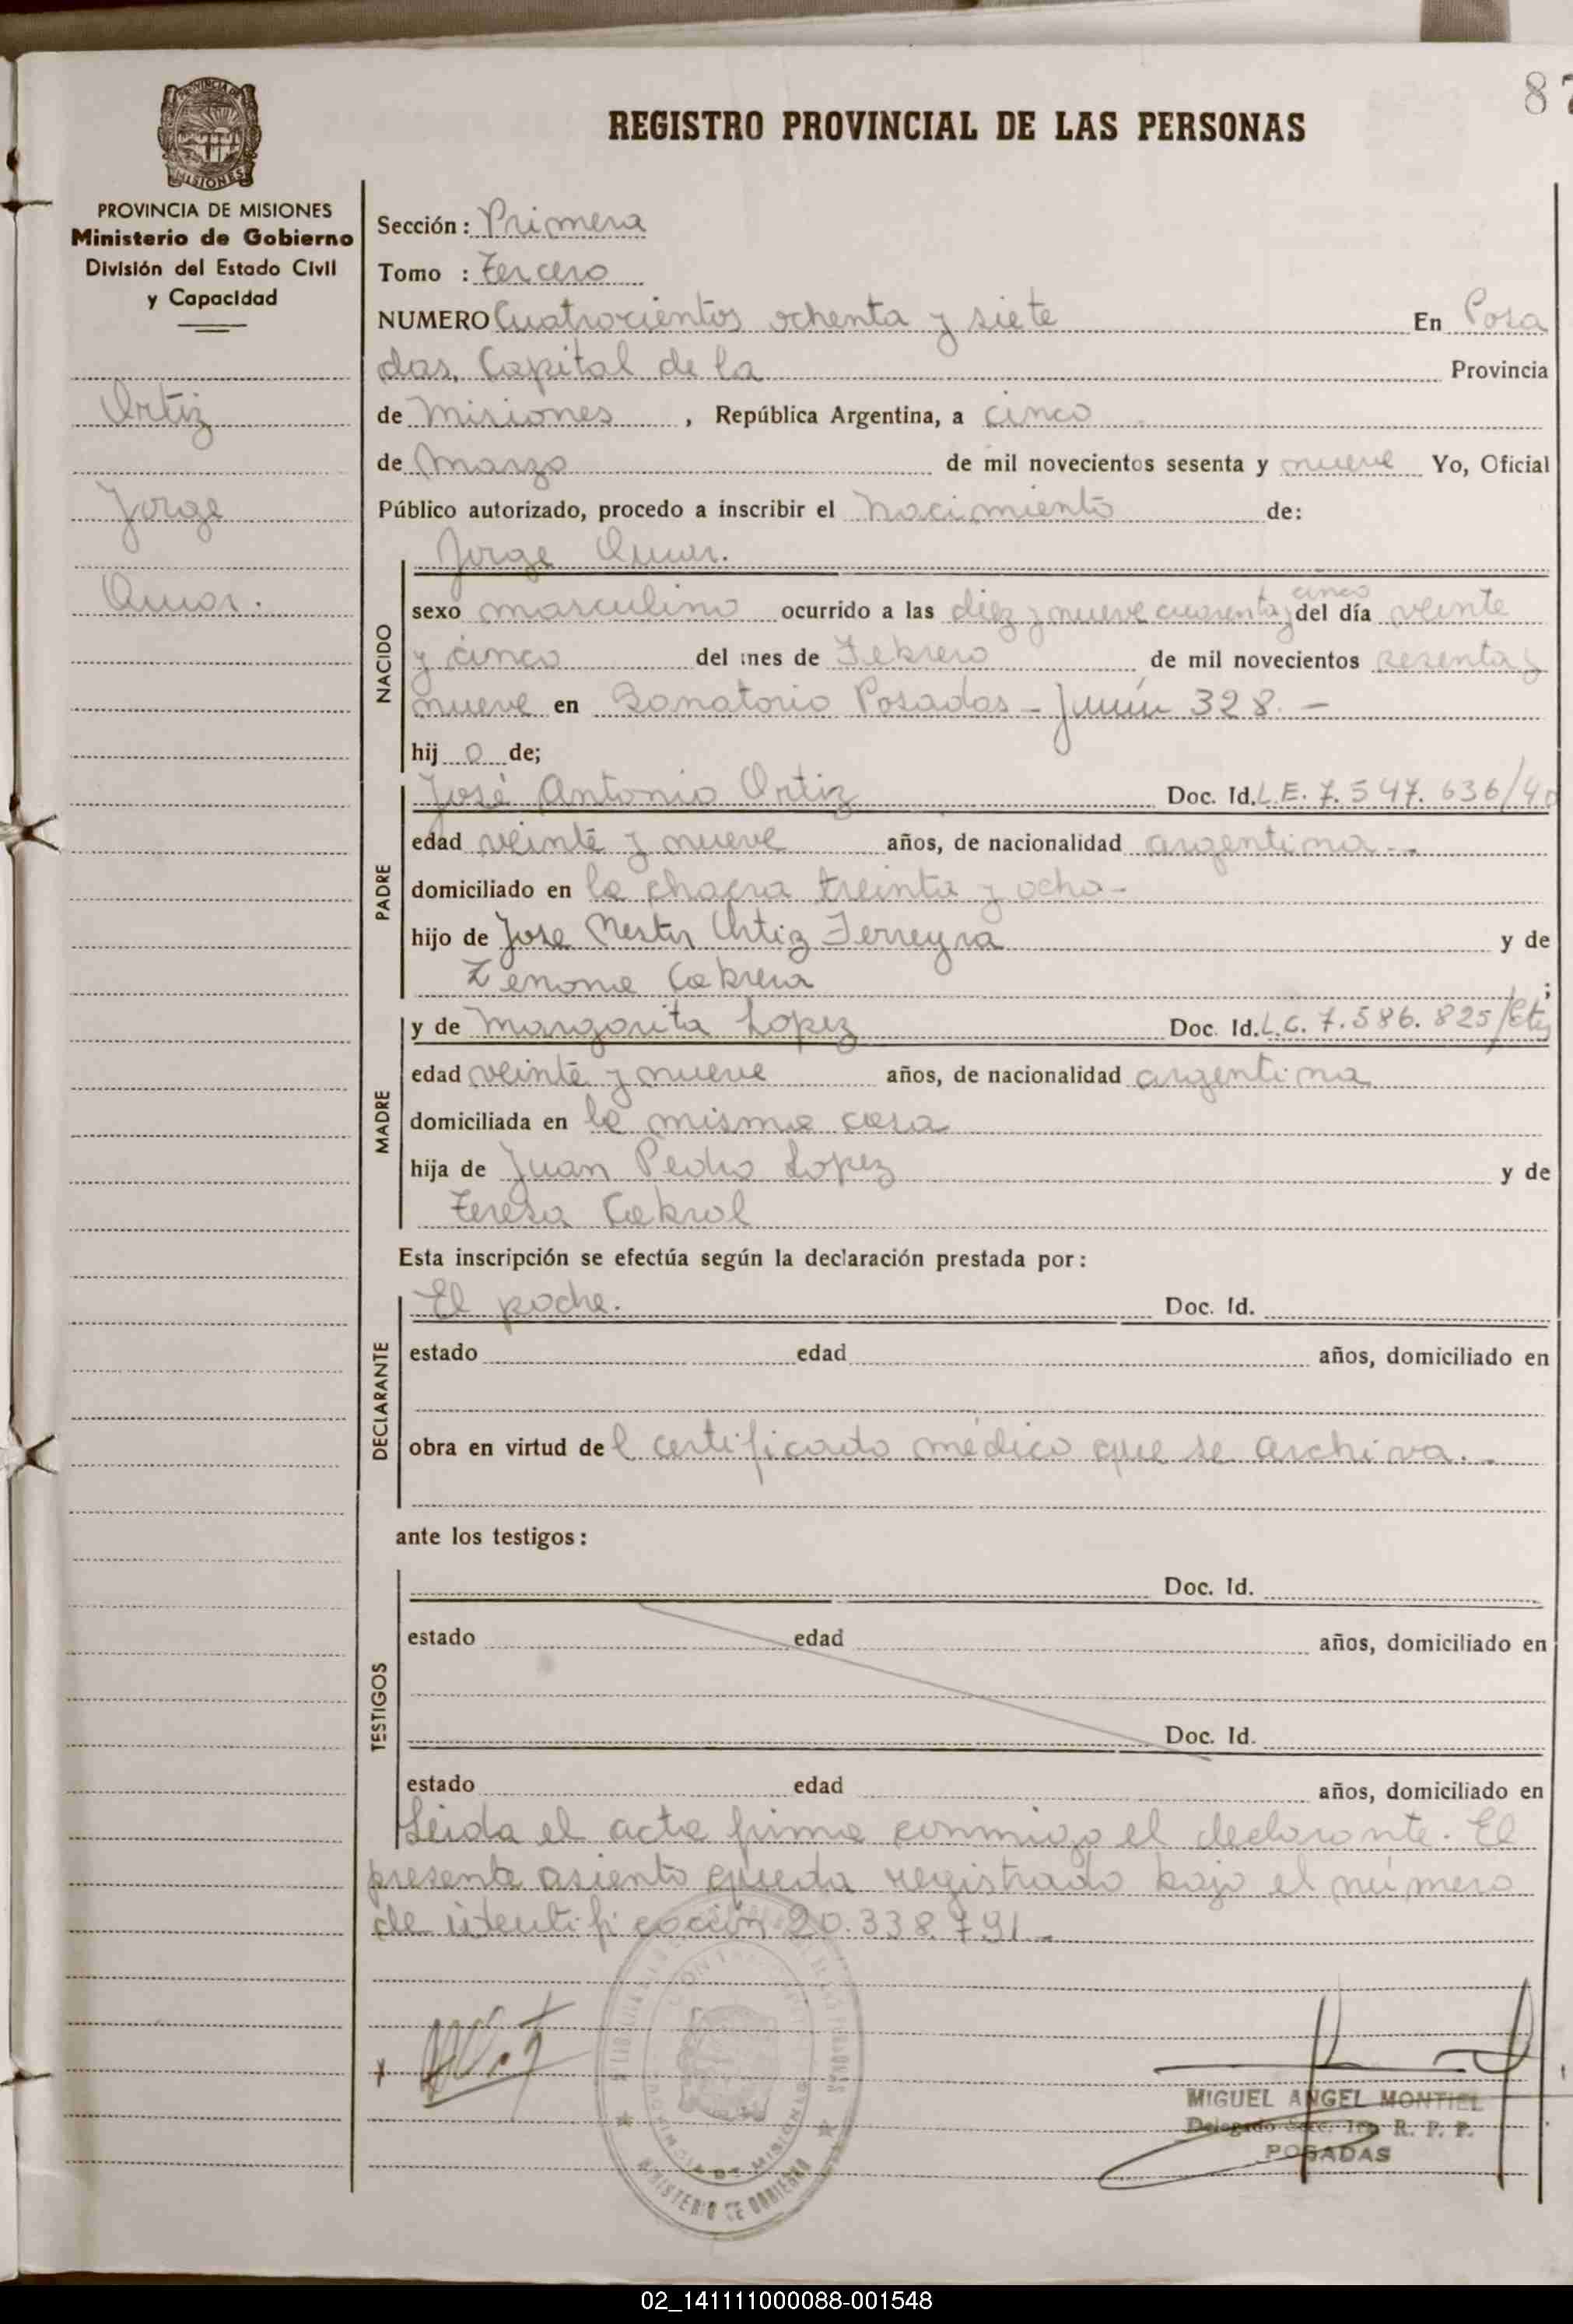 87
REGISTRO PROVINCIAL DE LAS PERSONAS
PROVINCIA DE MISIONES
MISIONES
PROVINCIA DE MISIONES
Ministerio de Gobierno
División del Estado Civil
y Capacidad
Ortiz
Jorge
Omar.
Sección: Primera
Tomo : Tercero
NUMERO Cuatrocientos ochenta y siete En Posa
das, Capital de la Provincia
de Misiones , República Argentina, a cinco
de Marzo de mil novecientos sesenta y nueve Yo, Oficial
Público autorizado, procedo a inscribir el Nacimiento de:
Jorge Omar.
NACIDO
cinco
sexo masculino ocurrido a las diez y nueve cuarenta y del día veinte
y cinco del mes de Febrero de mil novecientos sesenta y
nueve en Sanatorio Posadas - Junín 328. -
hij o de;
PADRE
José Antonio Ortiz Doc. Id. L.E. 7.547.636/40
edad veinte y nueve años, de nacionalidad argentina -
domiciliado en la chacra treinta y ocho -
hijo de Jose Nestor Ortiz Ferreyra y de
Zenona Cabrera ;
MADRE
y de Margarita Lopez Doc. Id. L.C. 7.586.825/
edad veinte y nueve años, de nacionalidad argentina
domiciliada en la misma casa
hija de Juan Pedro Lopez y de
Teresa Cabral
Esta inscripción se efectúa según la declaración prestada por:
DECLARANTE
El padre. Doc. Id.
estado edad años, domiciliado en
obra en virtud de l certificado médico que se archiva. -
ante los testigos:
TESTIGOS
Doc. Id.
estado edad años, domiciliado en
Doc. Id.
estado edad años, domiciliado en
Leida el acta firma conmigo el declarante. El
presente asiento queda registrado bajo el número
de identificación 20.338.791 -
PROVINCIA DE MISIONES
MINISTERIO DE GOBIERNO
MIGUEL ANGEL MONTIEL
Delegado Secc. 1ra R. P. P.
POSADAS
02_141111000088-001548